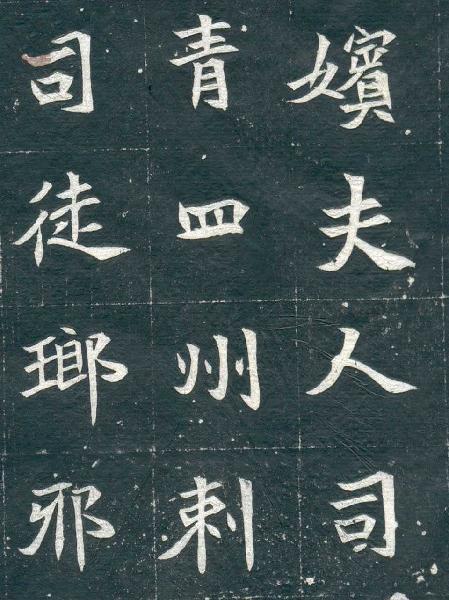 嬪夫人司
青四州刺
司徒瑯邪